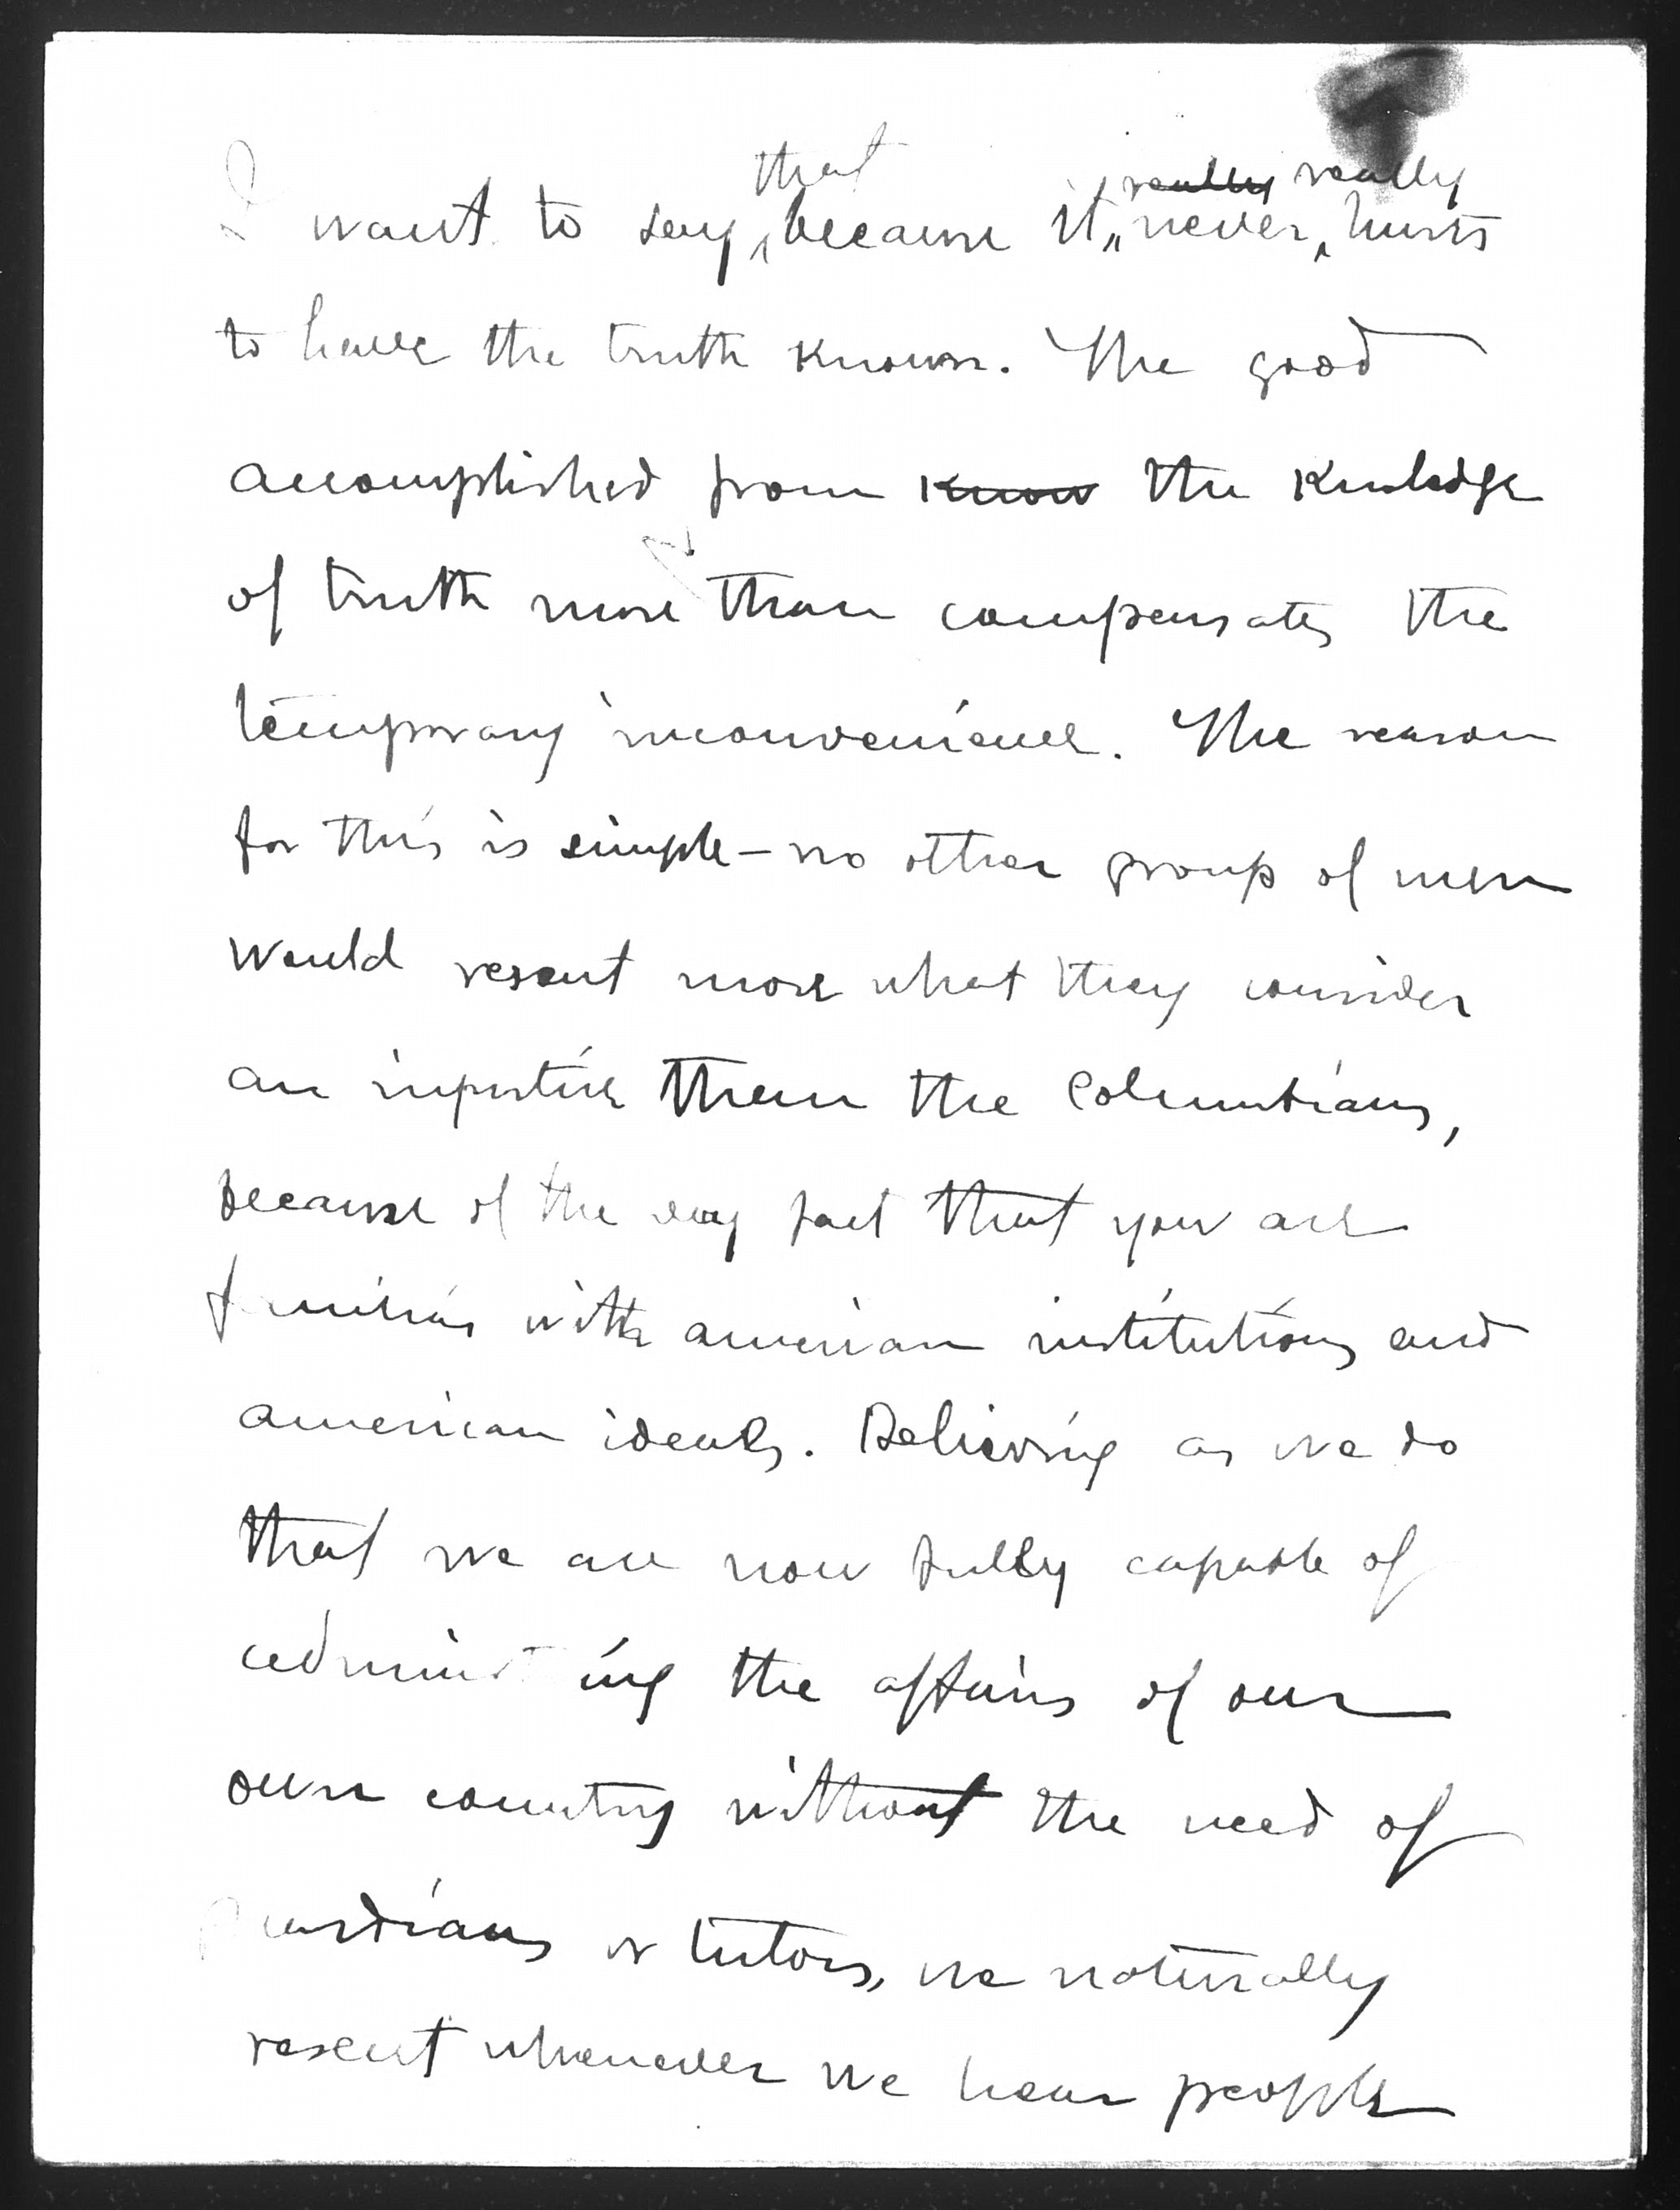 I want to say, that because it, really really never, hurts
to have the truth known. The good
accomplished from know the knowledge
of truth more than compensates the
temporary inconvenience. The reason
for this is simple — no other group of men
would resent more what they consider
an injustice than the Columbians,
because of the very fact that you are
familiar with american institutions and
american ideals. Believing as we do
that we are now fully capable of
administ ing the affairs of our
own country without the need of
guardians or tutors, we naturally
resent whenever we hear people